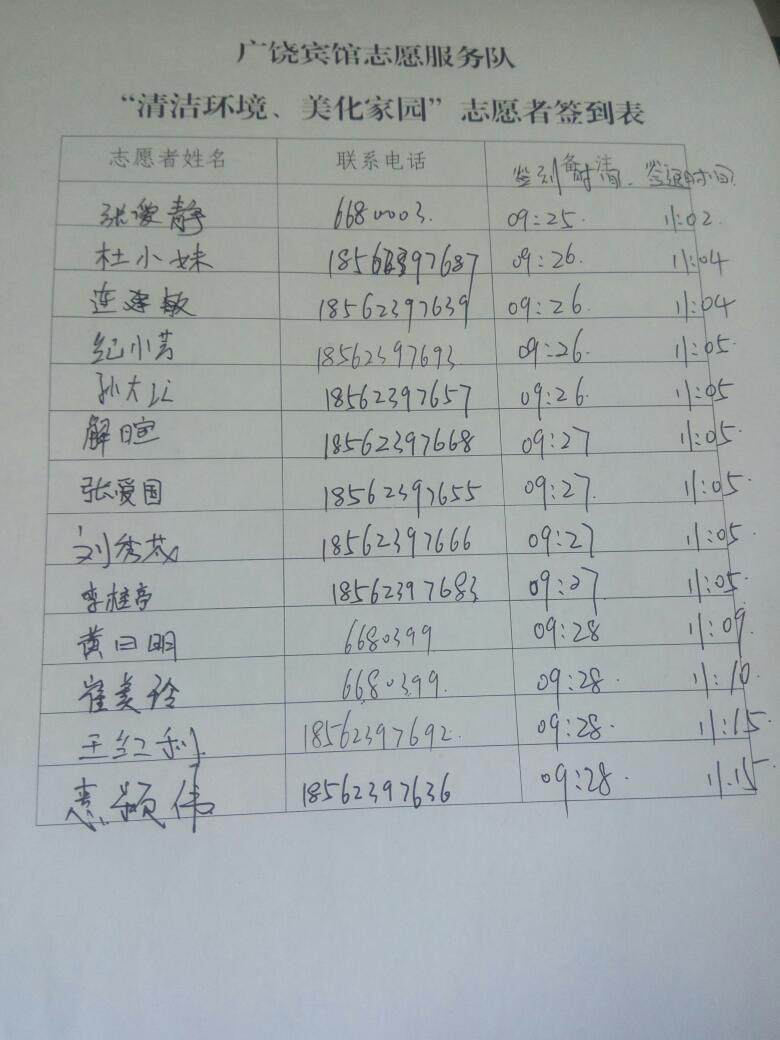 广饶宾馆志愿服务队
“清洁环境、美化家园”志愿者签到表
志愿者姓名 联系电话 备注 签到时间、签退时间
张爱静 6680003. 09:25. 11:02.
杜小妹 18562397687 09:26. 11:04
连建敏 18562397639 09:26. 11:04
纪小芳 18562397693 09:26. 11:05.
孙大江 18562397657 09:26. 11:05
解暄 18562397668 09:27 11:05.
张爱国 18562397655 09:27. 11:05.
刘秀茂 18562397666 09:27 11:05.
李桂亭 18562397683 09:27. 11:05.
黄曰明 6680399 09:28 11:09.
崔美玲 6680399. 09:28. 11:10.
王红利 18562397692. 09:28. 11:15.
颖伟 18562397636 09:28. 11.15